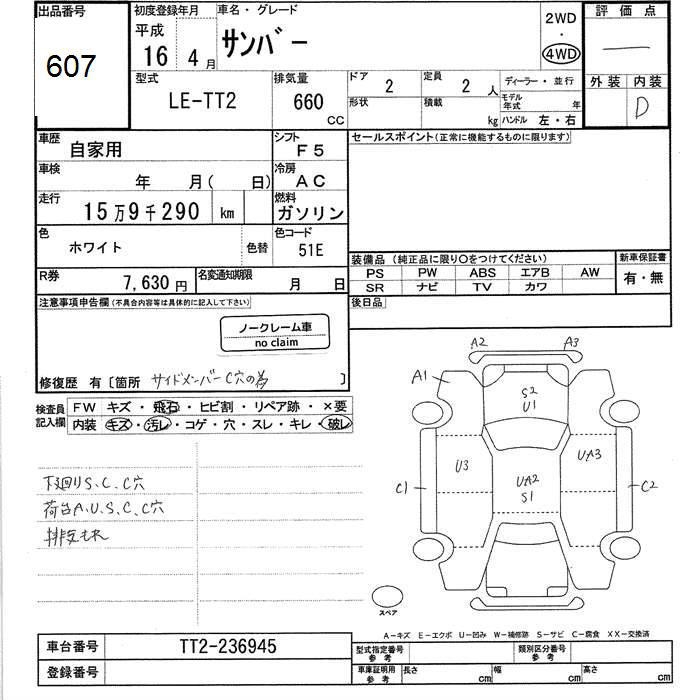 出品番号
607
初度登録年月
平成
16 4 月
車名・グレード
サンバー
2WD
・
4WD
評価点
—
外装 内装
D
型式
LE-TT2
排気量
660
CC
ドア
2
形状
定員
2 人
積載
kg
ディーラー・並行
モデル年式 年
ハンドル 左・右
車歴
自家用
シフト
F5
車検
年 月( 日)
冷房
AC
走行
15万9千290 km
燃料
ガソリン
色
ホワイト
色替
色コード
51E
R券
7,630円
名変通知期限
月 日
セールスポイント(正常に機能するものに限ります)
装備品(純正品に限り〇をつけてください)
PS PW ABS エアB AW
SR ナビ TV カワ
新車保証書
有・無
後日品
注意事項申告欄(不具合内容等は具体的に記入して下さい)
ノークレーム車
no claim
修復歴 有〔箇所 サイドメンバーC穴の為 〕
検査員記入欄
FW キズ・飛石・ヒビ割・リペア跡・×要
内装 キズ・汚レ・コゲ・穴・スレ・キレ・破レ
下廻りS、C、C穴
荷台A、U、S、C、C穴
排気もれ
A2 A3
A1
S2
U1
U3 UA3
UA2
S1
C1 C2
スペア
A-キズ E-エクボ U-凹み W-補修跡 S-サビ C-腐食 XX-交換済
車台番号 TT2-236945
登録番号
型式指定番号
参考
類別区分番号
参考
車庫証明用
参考
長さ cm 幅 cm 高さ cm